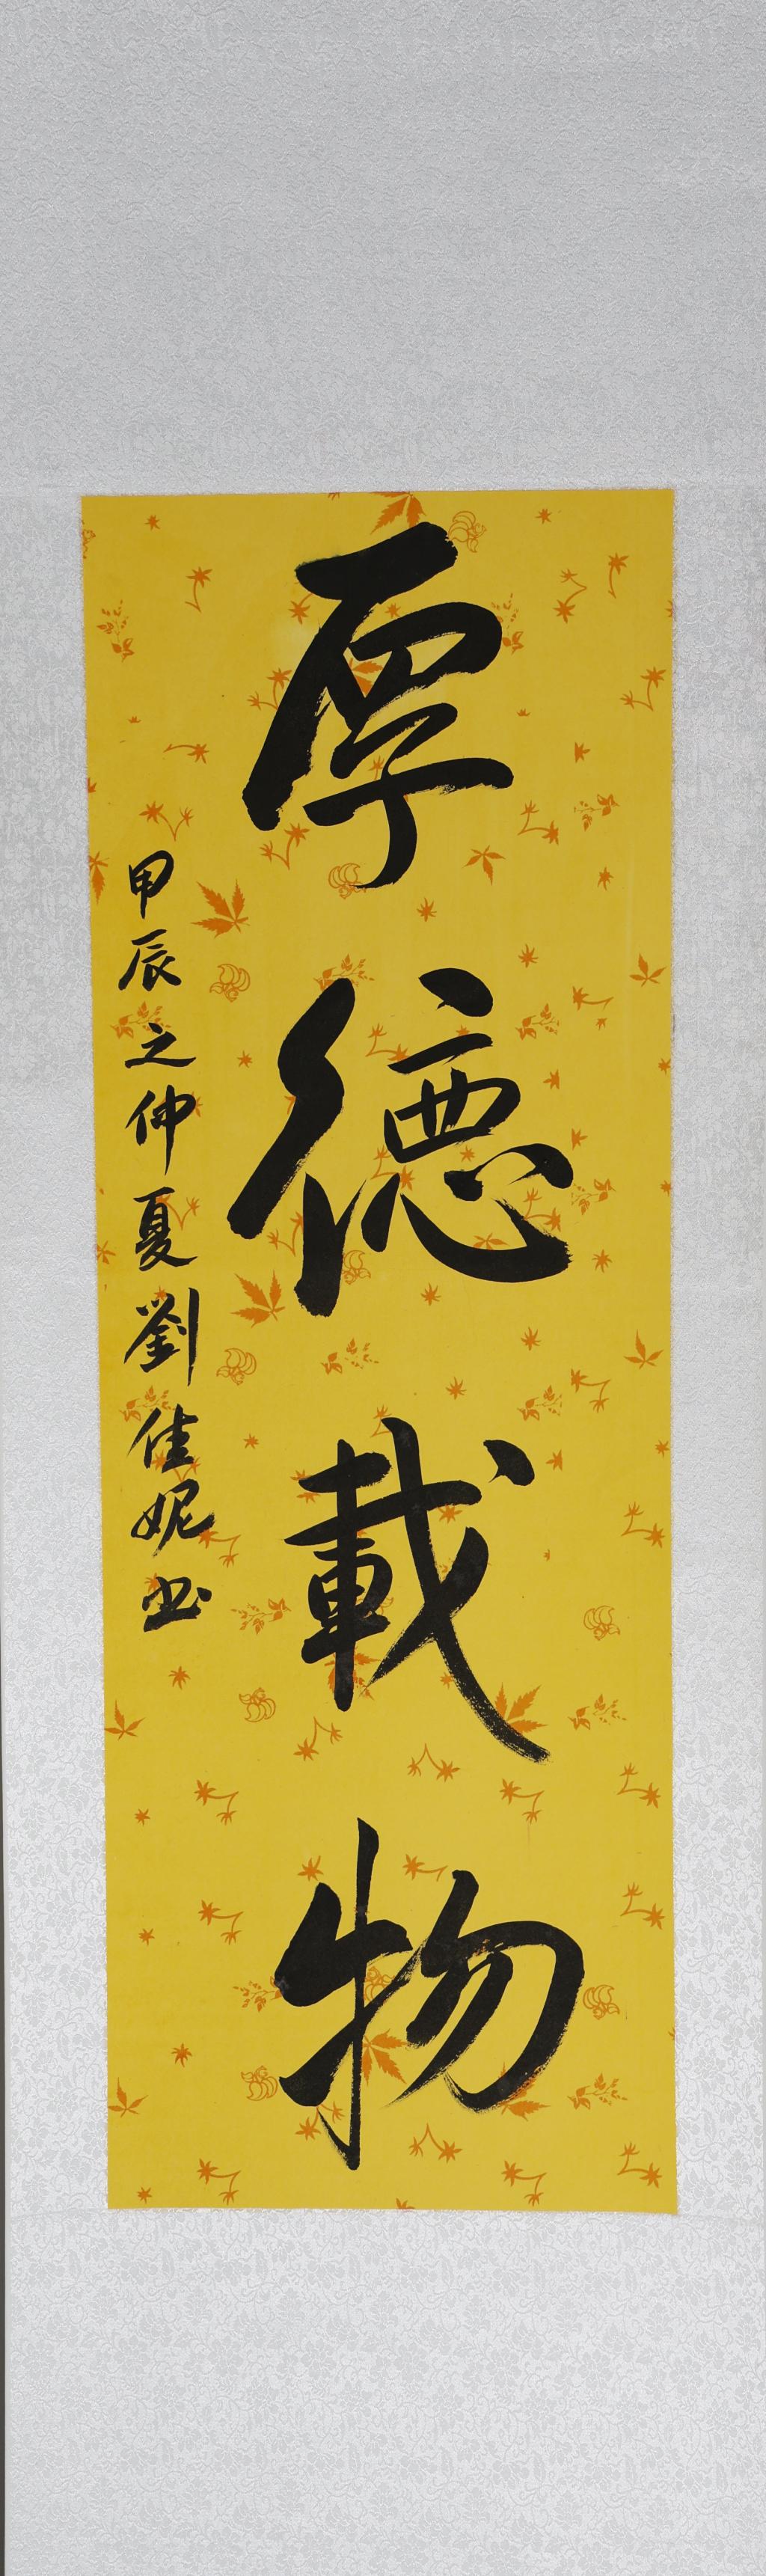 厚德載物
甲辰之仲夏劉佳妮书